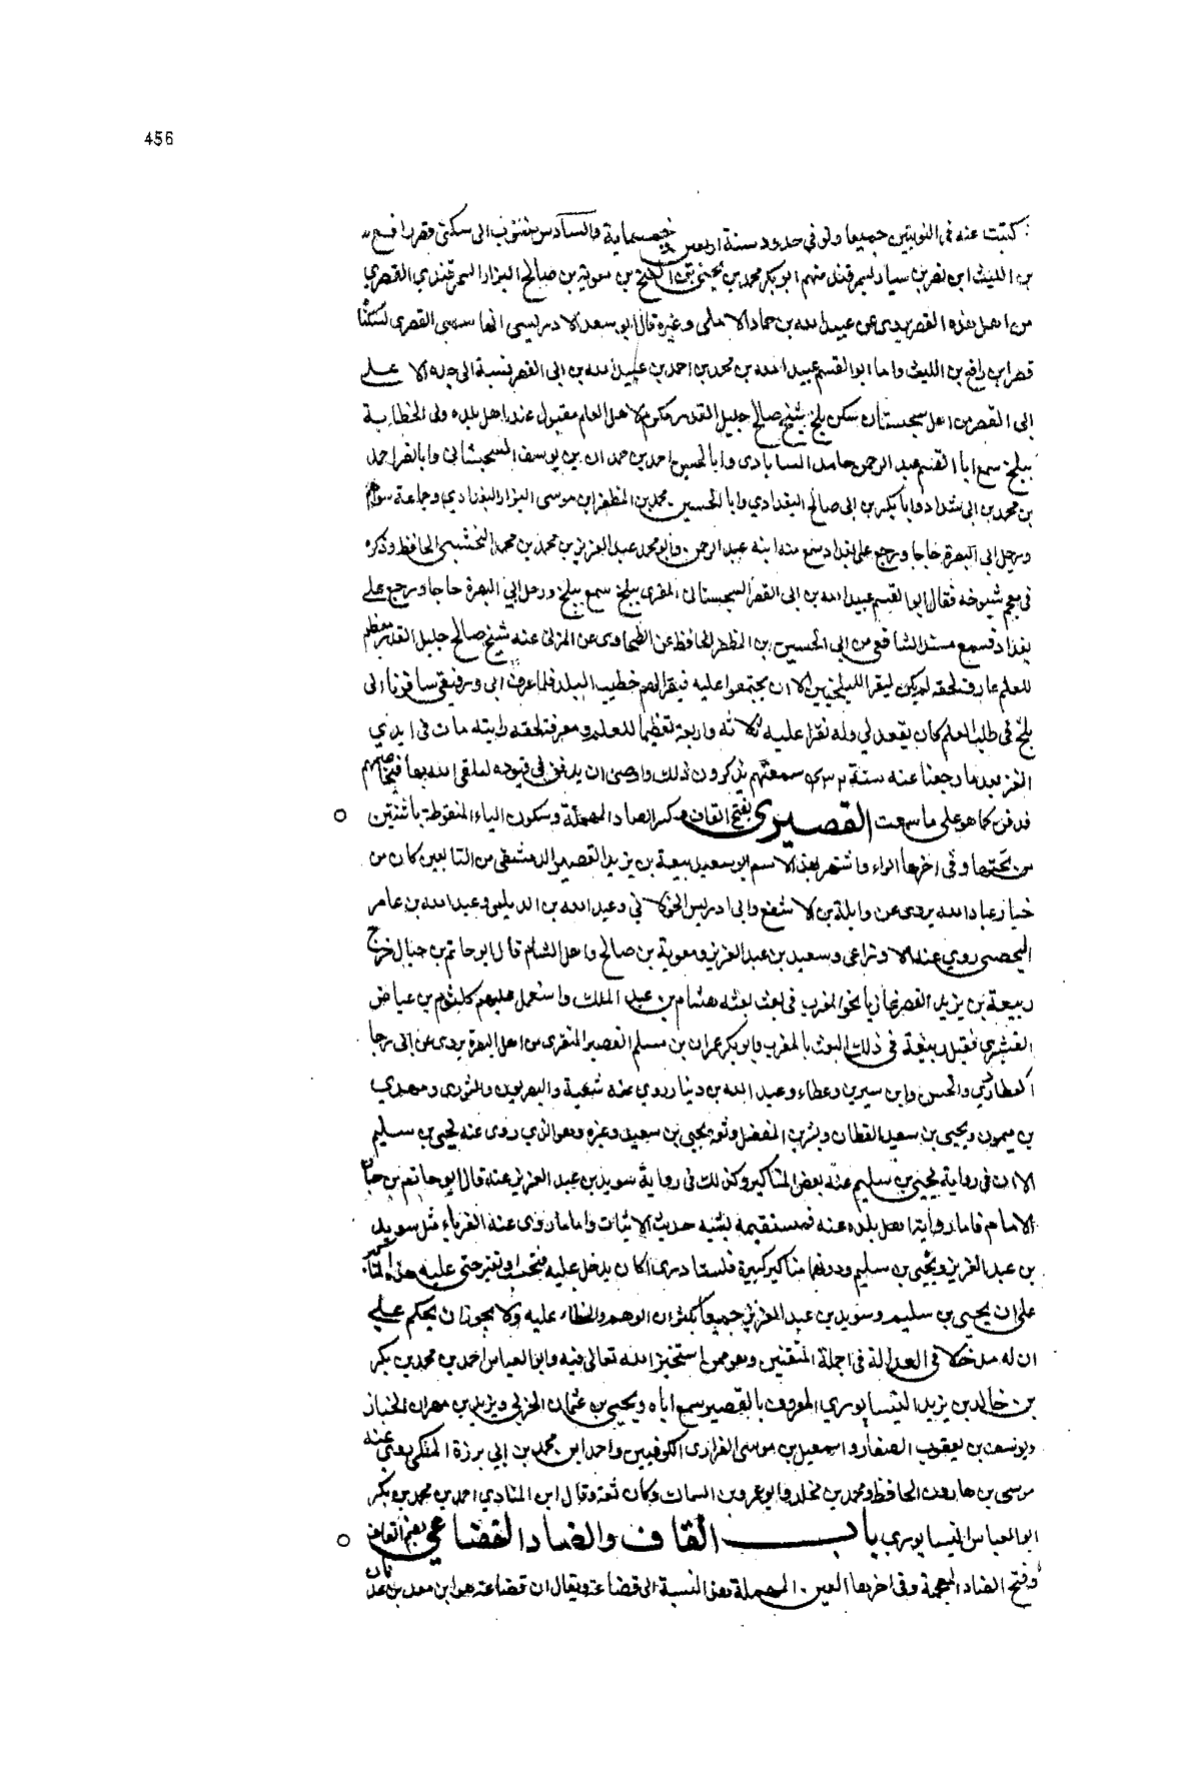 456
كتبت عنه فى النوبتين جميعا وتوفى حدود سنة اربعين خمسماية والسادس منسوب الى سكنى قصر رافع
بن الليث ابن نصر بن سيار لسمرقند منهم ابو بكر محمد بن يحيى بن الفتح بن معوية بن صالح البزار السمرقندي القصري
من اهل هذه القصر يروى عن عبيد الله بن حماد الاملى وغيره قال ابو سعد الادريسى انما سمى القصرى لسكناه
قصر ابن رافع بن الليث واما ابو القسم عبيد الله بن محمد بن احمد بن عبيد الله بن ابى القصر نسبة الى جده الاعلى
ابى القصر من اهل سجستان سكن بلخ شيخ صالح جليل القدر مكرم لاهل العلم مقبول عند اهل بلده ولى الخطابة
ببلخ سمع ابا القسم عبد الرحمن حامد وابا الحسين احمد بن حمدان بن يوسف السجستانى وابا نصر احمد
بن محمد بن ابى شداد وابا بكر بن ابى صالح البغدادي وابا الحسين محمد بن المظفر ابن موسى البزار البغدادي وجماعة سواهم
ورحل الى البصرة حاجا ورجع على بغداد سمع منه ابنه عبد الرحمن وابو محمد عبد العزيز بن محمد بن محمد النخشبى الحافظ وذكره
فى معجم شيوخه فقال ابو القسم عبيد الله بن ابى القصر السجستانى المقرى ببلخ سمع ببلخ ورحل الي البصرة حاجا ورجع على
بغداد فسمع مسند الشافعى من ابى الحسين بن المظفر الحافظ عن الطحاوى عن المزنى عنه شيخ صالح جليل القدر معظم
للعلم عارف لحقه لم يكن ليقرا الا ان يجتمعوا عليه فيقرا لهم خطيب البلد فلما عرف انى ورفيقى سافرنا الى
بلخ فى طلب العلم كان يقعد لي وله نقرا عليه ثلاثه واربعة تعظيما للعلم ومعرفة لحقه رايته مات فى ايدي
الغز بعد ما رجعنا عنه سنة سمعتهم يذكرون ذلك واوصى ان يدفن فى قيوده ليلقى الله بها
فدفن كما هو على ما سمعت القصيرى بفتح القاف وكسر الصاد المهملة وسكون الياء المنقوطة باثنتين
من تحتها وفى اخرها الراء واشتهر بهذا الاسم ابو سعيد ربيعة بن يزيد القصير الدمشقى من التابعين كان من
خيار عباد الله يروى عن واثلة بن الاسقع وابى ادريس الخولانى وعبد الله بن الديلمى وعبد الله بن عامر
اليحصبى روي عنه الاوزاعى وسعيد بن عبد العزيز ومعوية بن صالح واهل الشام قال ابو حاتم بن حبان خرج
ربيعة بن يزيد القصير غازيا نحو المغرب فى بعث بعثه هشام بن عبد الملك واستعمل عليهم كلثوم بن عياض
القشيري فقتل ربيعة فى ذلك البعث بالمغرب وابو بكر عمران بن مسلم القصير المنقرى من اهل البصرة يروى عن ابى رجا
العطاردي والحسن وابن سيرين وعطاء وعبد الله بن دينار روي عنه شعبة والبصريون والثورى ومهدي
بن ميمون ويحيى بن سعيد القطان وبشر بن المفضل وثقه يحيى بن سعيد وغيره وهو الذي روى عنه يحيى بن سليم
الا ان فى رواية يحيى بن سليم عنه بعض المناكير وكذلك فى رواية سويد بن عبد العزيز عنه قال ابو حاتم بن حبان
الامام فاما رواية اهل بلده عنه فمستقيمة يشبه حديث الاثبات واما ما روى عنه الغرباء مثل سويد
بن عبد العزيز ويحيى بن سليم ودونهما مناكير كبيرة فلست ادرى اكان يدخل عليه فيجيب او تغير حتى عليه هذه المناكير
على ان يحيى بن سليم وسويد بن عبد العزيز جميعا يكثران الوهم والخطاء عليه ولا يجوز ان يحكم على
ان له مدخلا فى العدالة فى جملة المتقنين وهو ممن استخير الله تعالى فيه وابو العباس احمد بن محمد بن بكر
بن خالد بن يزيد النيسابورى المعروف بالقصير سمع اباه ويحيى بن عثمان الحربى ويزيد بن مهران الخباز
ويوسف بن يعقوب الصفار واسمعيل بن موسى الفزارى الكوفيين واحد ابن محمد بن ابي برزة المكى روى عنه
موسى بن هارون الحافظ ومحمد بن مخلد وابو عمرو بن السماك وكان ثقة وقال ابن المنادي احمد بن محمد بن بكر
ابو العباس النيسابورى باب القاف والضاد القضاعي بضم القاف
وفتح الضاد المعجمة وفى اخرها العين المهملة هذه النسبة الى قضاعة ويقال ان قضاعة هو ابن معد بن عدنان